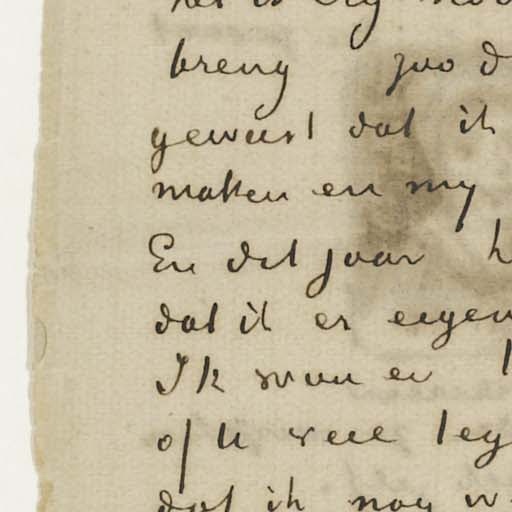 het is erg
breng zoo d
geweest dat ik
maken en my
En dit jaar h
dat ik er eigen
Ik was er
of U veel leg
dat ik nog w